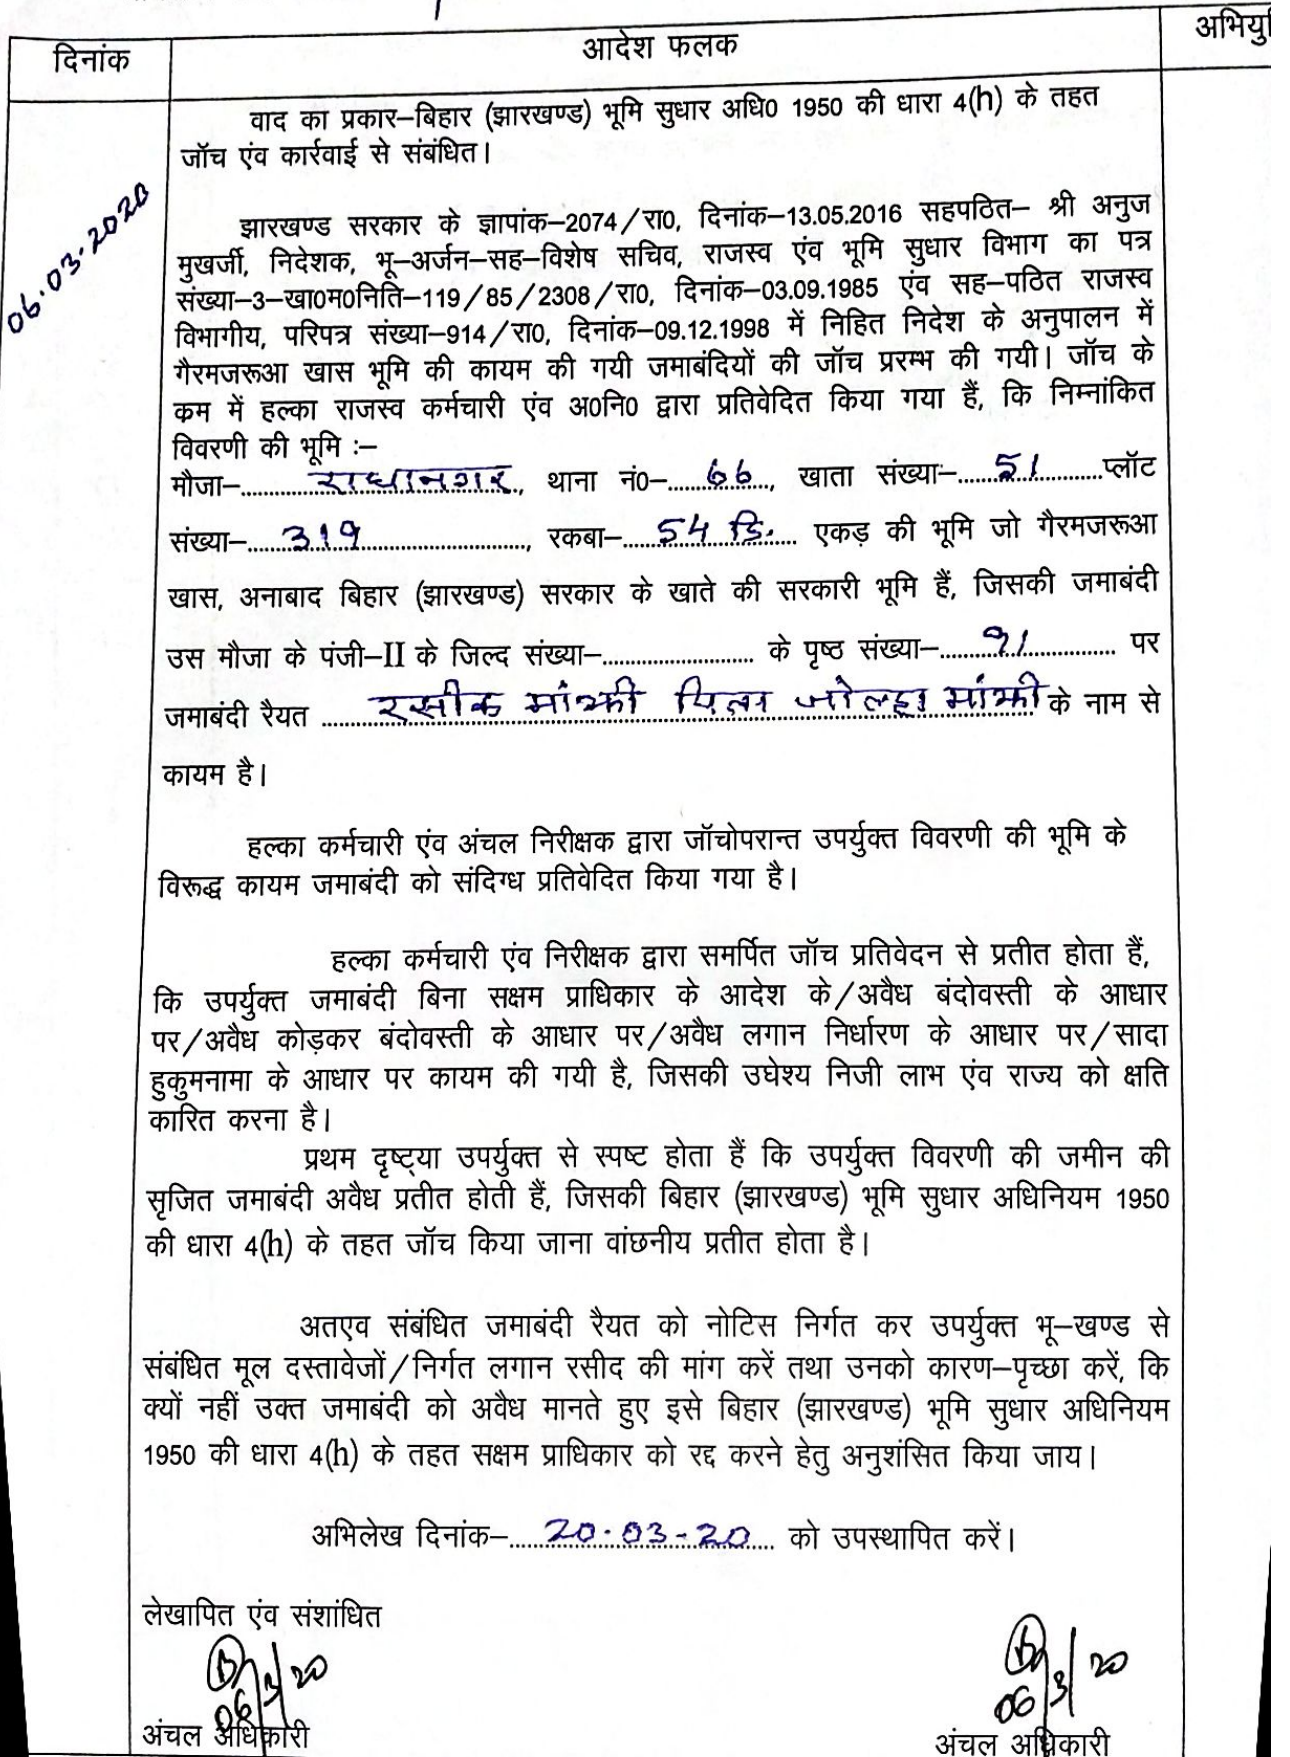 दिनांक
आदेश फलक
अभियु
06.03.2020
वाद का प्रकार–बिहार (झारखण्ड) भूमि सुधार अधि0 1950 की धारा 4(h) के तहत
जॉच एंव कार्रवाई से संबंधित।
झारखण्ड सरकार के ज्ञापांक–2074/रा0, दिनांक–13.05.2016 सहपठित– श्री अनुज
मुखर्जी, निदेशक, भू–अर्जन–सह–विशेष सचिव, राजस्व एंव भूमि सुधार विभाग का पत्र
संख्या–3–खा0म0निति–119/85/2308/रा0, दिनांक–03.09.1985 एंव सह–पठित राजस्व
विभागीय, परिपत्र संख्या–914/रा0, दिनांक–09.12.1998 में निहित निदेश के अनुपालन में
गैरमजरूआ खास भूमि की कायम की गयी जमाबंदियों की जॉच प्ररम्भ की गयी। जॉच के
कम में हल्का राजस्व कर्मचारी एंव अ0नि0 द्वारा प्रतिवेदित किया गया हैं, कि निम्नांकित
विवरणी की भूमि :–
मौजा–.....राधानगर....., थाना नं0–.....66....., खाता संख्या–.....51.....प्लॉट
संख्या–.....319....., रकबा–.....54 डि...... एकड़ की भूमि जो गैरमजरूआ
खास, अनाबाद बिहार (झारखण्ड) सरकार के खाते की सरकारी भूमि हैं, जिसकी जमाबंदी
उस मौजा के पंजी–II के जिल्द संख्या–..................... के पृष्ठ संख्या–.....91..... पर
जमाबंदी रैयत .....रसीक मांझी पिता जोल्हा मांझी के नाम से
कायम है।
हल्का कर्मचारी एंव अंचल निरीक्षक द्वारा जॉचोपरान्त उपर्युक्त विवरणी की भूमि के
विरूद्ध कायम जमाबंदी को संदिग्ध प्रतिवेदित किया गया है।
हल्का कर्मचारी एंव निरीक्षक द्वारा समर्पित जॉच प्रतिवेदन से प्रतीत होता हैं,
कि उपर्युक्त जमाबंदी बिना सक्षम प्राधिकार के आदेश के/अवैध बंदोवस्ती के आधार
पर/अवैध कोड़कर बंदोवस्ती के आधार पर/अवैध लगान निर्धारण के आधार पर/सादा
हुकुमनामा के आधार पर कायम की गयी है, जिसकी उघेश्य निजी लाभ एंव राज्य को क्षति
कारित करना है।
प्रथम दृष्ट्या उपर्युक्त से स्पष्ट होता हैं कि उपर्युक्त विवरणी की जमीन की
सृजित जमाबंदी अवैध प्रतीत होती हैं, जिसकी बिहार (झारखण्ड) भूमि सुधार अधिनियम 1950
की धारा 4(h) के तहत जॉच किया जाना वांछनीय प्रतीत होता है।
अतएव संबंधित जमाबंदी रैयत को नोटिस निर्गत कर उपर्युक्त भू–खण्ड से
संबंधित मूल दस्तावेजों/निर्गत लगान रसीद की मांग करें तथा उनको कारण–पृच्छा करें, कि
क्यों नहीं उक्त जमाबंदी को अवैध मानते हुए इसे बिहार (झारखण्ड) भूमि सुधार अधिनियम
1950 की धारा 4(h) के तहत सक्षम प्राधिकार को रद्द करने हेतु अनुशंसित किया जाय।
अभिलेख दिनांक–.....20.03-20..... को उपस्थापित करें।
लेखापित एंव संशांधित
06/3/20
06/3/20
अंचल अधिकारी
अंचल अधिकारी